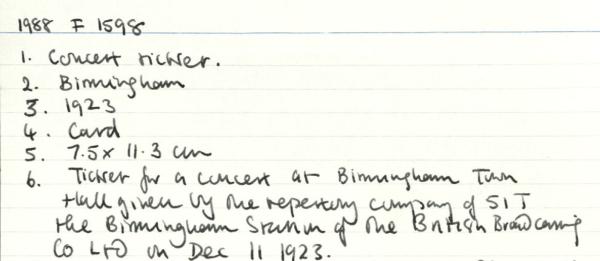 1988 F 1598
1. Concert ticket.
2. Birmingham
3. 1923
4. Card
5. 7.5 x 11.3 cm
6. Ticket for a concert at Birmingham Town
Hall given by the repertory company of 5IT
the Birmingham Station of the British Broadcasting
Co LTD on Dec 11 1923.